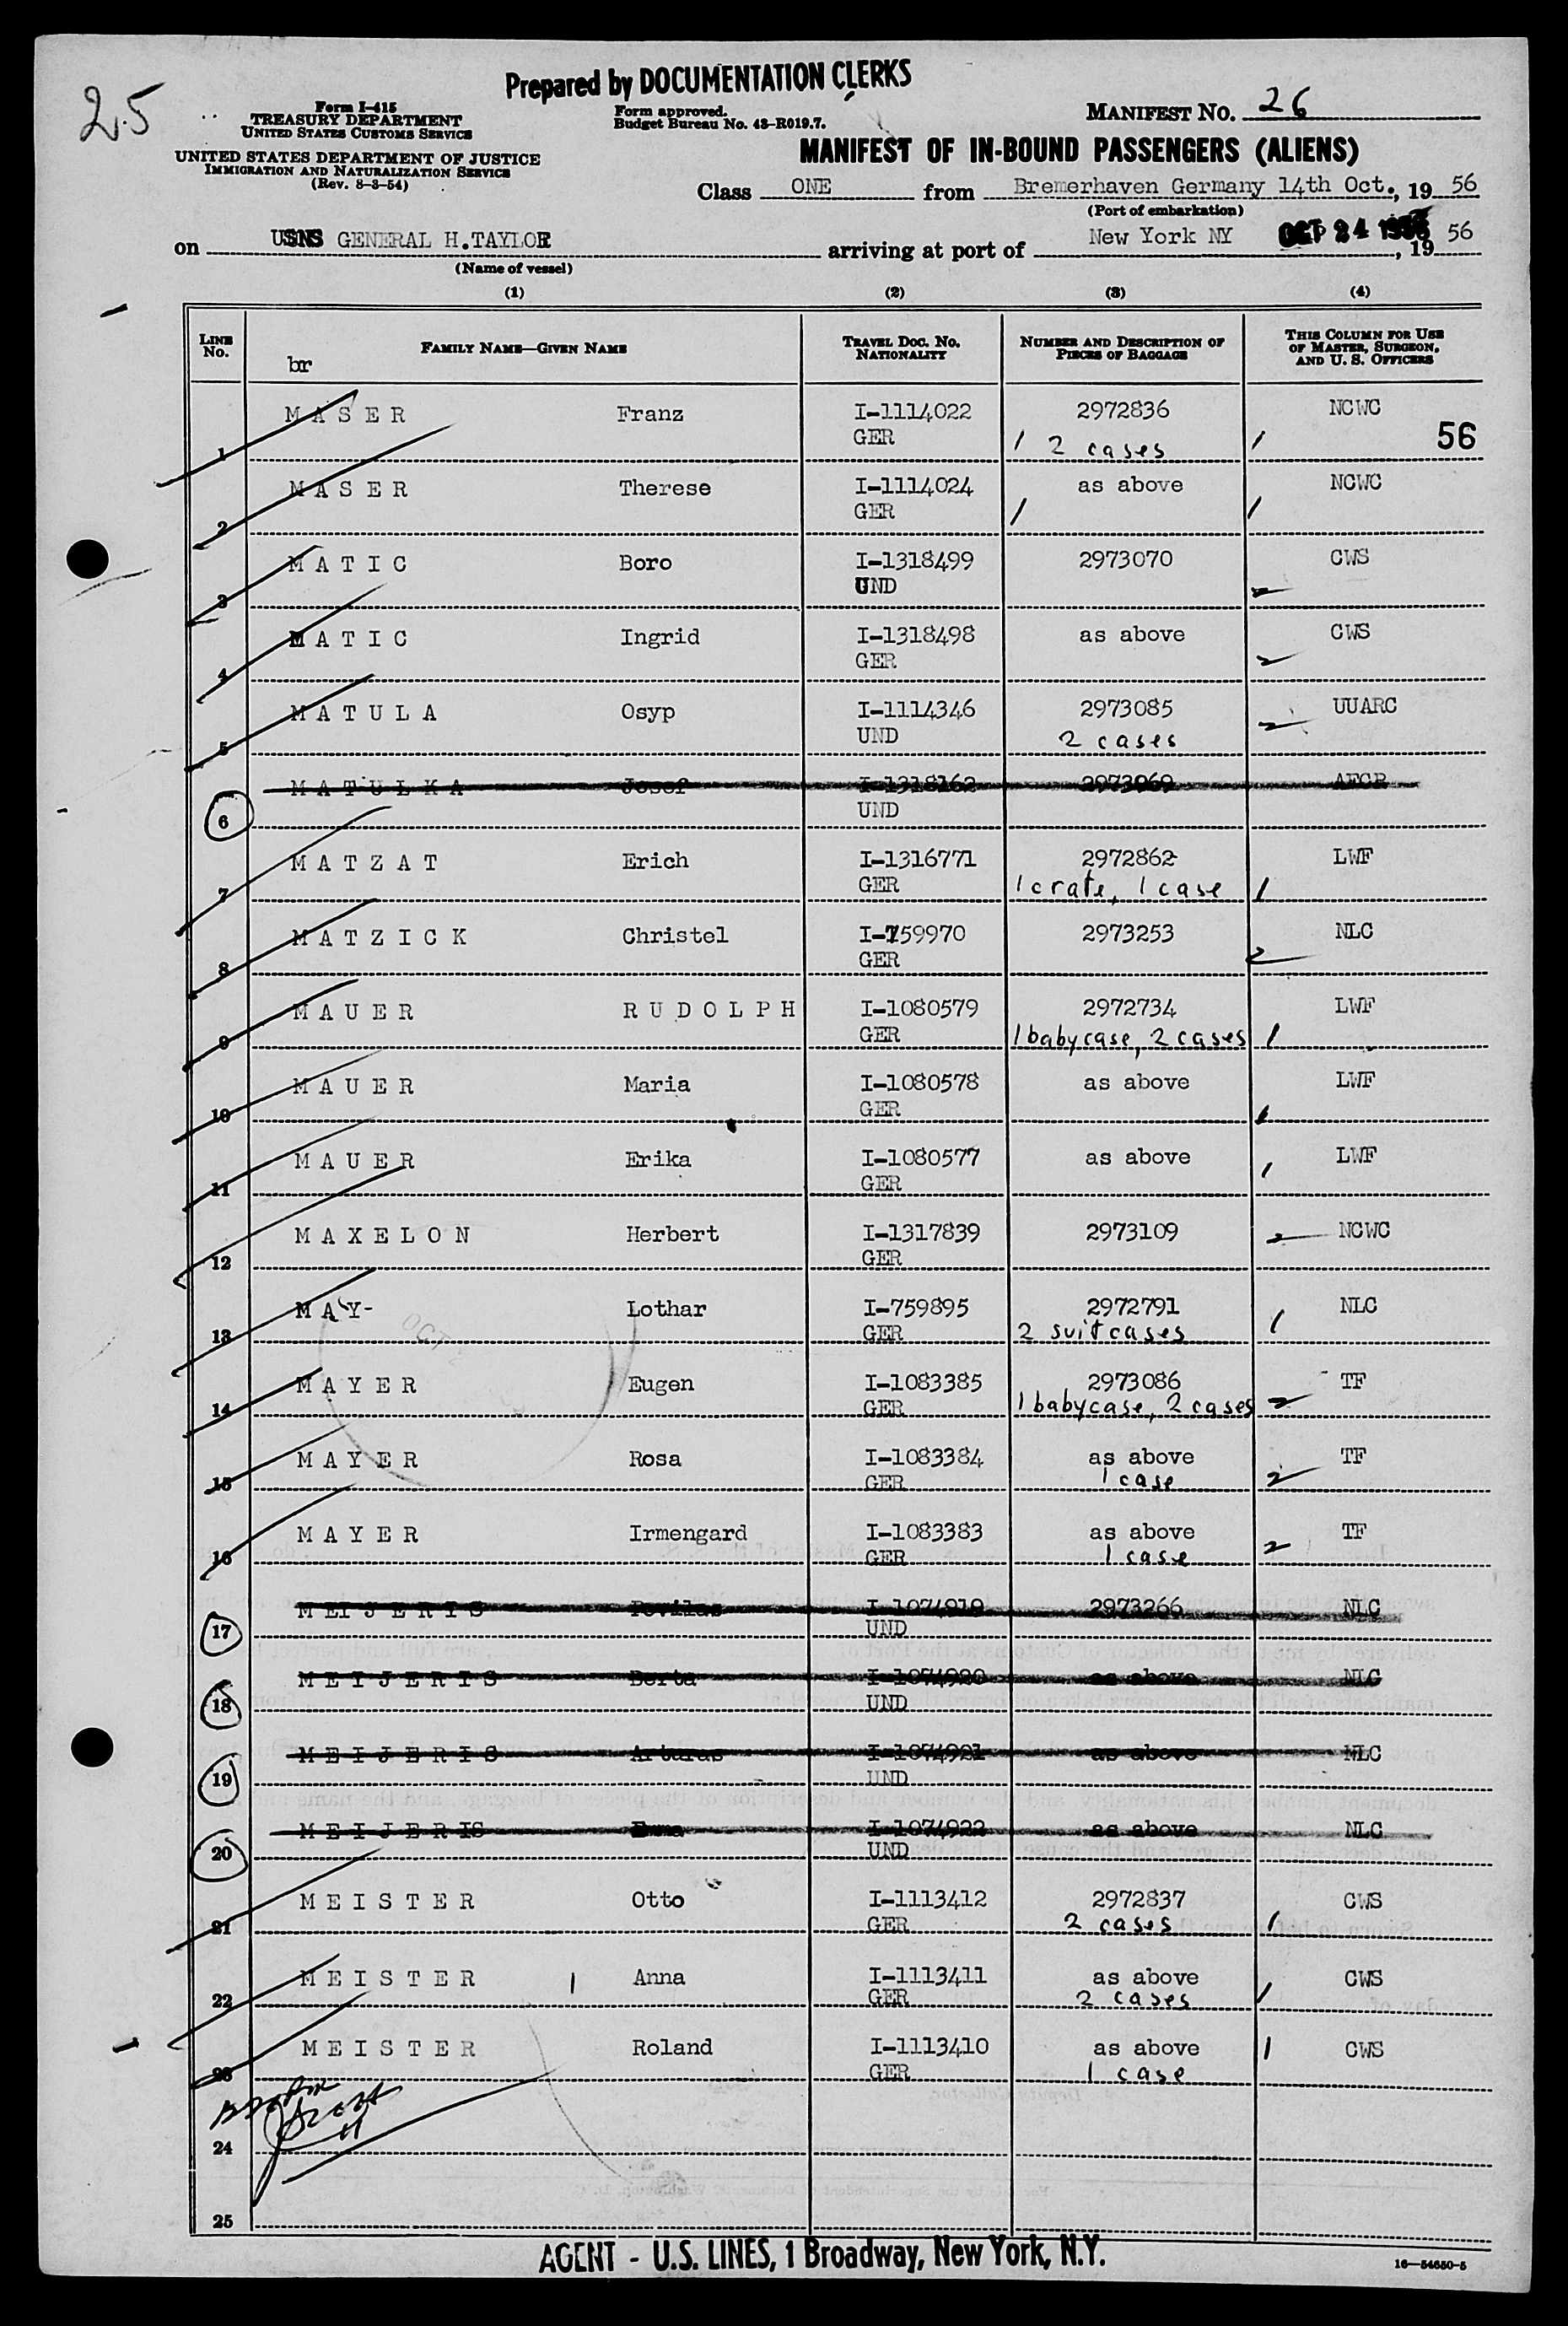 25
Prepared by DOCUMENTATION CLERKS
Form I-415
TREASURY DEPARTMENT
UNITED STATES CUSTOMS SERVICE
Form approved.
Budget Bureau No. 43-R019.7.
MANIFEST NO. 26
UNITED STATES DEPARTMENT OF JUSTICE
IMMIGRATION AND NATURALIZATION SERVICE
(Rev. 8-3-54)
MANIFEST OF IN-BOUND PASSENGERS (ALIENS)
Class ONE from Bremerhaven Germany 14th Oct., 19 56
(Port of embarkation)
on USNS GENERAL H.TAYLOR arriving at port of New York NY OCT 24 1956, 19 56
(Name of vessel)
(1) (2) (3) (4)
LINE No. FAMILY NAME—GIVEN NAME TRAVEL DOC. NO. NATIONALITY NUMBER AND DESCRIPTION OF PIECES OF BAGGAGE THIS COLUMN FOR USE OF MASTER, SURGEON, AND U. S. OFFICERS
br
MASER Franz I-1114022 2972836 NCWC
1 GER / 2 cases / 56
MASER Therese I-1114024 as above NCWC
2 GER / /
MATIC Boro I-1318499 2973070 CWS
3 UND 2
MATIC Ingrid I-1318498 as above CWS
4 GER 2
MATULA Osyp I-1114346 2973085 UUARC
5 UND 2 cases 2
MATULKA Josef I-1318162 2973069 AFCR
6 UND
MATZAT Erich I-1316771 2972862 LWF
7 GER 1 crate, 1 case /
MATZICK Christel I-759970 2973253 NLC
8 GER 2
MAUER RUDOLPH I-1080579 2972734 LWF
9 GER 1 babycase, 2 cases /
MAUER Maria I-1080578 as above LWF
10 GER /
MAUER Erika I-1080577 as above LWF
11 GER /
MAXELON Herbert I-1317839 2973109 2 NCWC
12 GER
MAY- Lothar I-759895 2972791 NLC
13 GER 2 suitcases /
MAYER Eugen I-1083385 2973086 TF
14 GER 1 babycase, 2 cases 2
MAYER Rosa I-1083384 as above TF
15 GER 1 case 2
MAYER Irmengard I-1083383 as above TF
16 GER 1 case 2
MEIJERIS Povilas I-1074919 2973266 NLC
17 UND
MEIJERIS Berta I-1074920 as above NLC
18 UND
MEIJERIS Arturas I-1074921 as above NLC
19 UND
MEIJERIS I-1074922 as above NLC
20 UND
MEISTER Otto I-1113412 2972837 CWS
21 GER 2 cases /
MEISTER Anna I-1113411 as above CWS
22 GER 2 cases /
MEISTER Roland I-1113410 as above 1 CWS
23 GER 1 case
24
25
AGENT - U.S. LINES, 1 Broadway, New York, N.Y.
16—54650-5